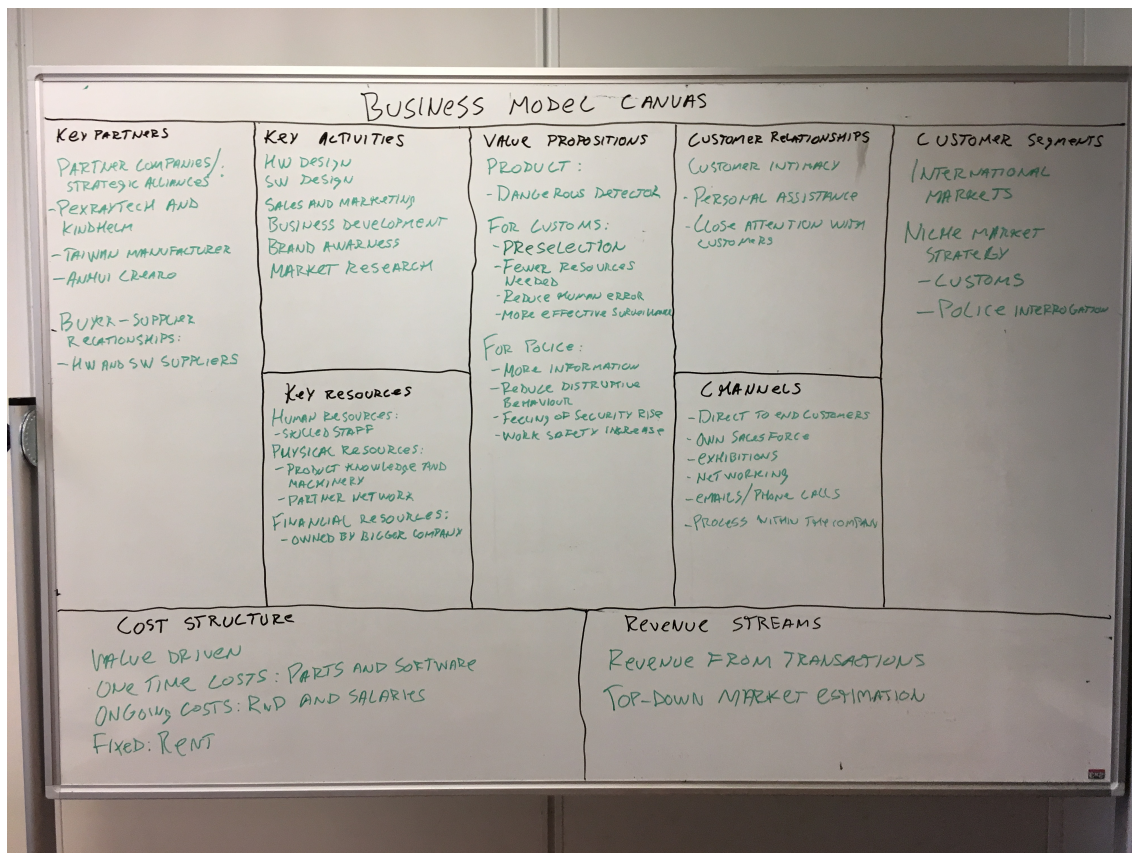 BUSINESS MODEL CANVAS
KEY PARTNERS
PARTNER COMPANIES/
STRATEGIC ALLIANCES
-PEXRAYTECH AND
KINDHELM
-TAIWAN MANUFACTURER
-ANHUI CREARO
BUYER-SUPPLIER
RELATIONSHIPS:
-HW AND SW SUPPLIERS
KEY ACTIVITIES
HW DESIGN
SW DESIGN
SALES AND MARKETING
BUSINESS DEVELOPMENT
BRAND AWARNESS
MARKET RESEARCH
KEY RESOURCES
HUMAN RESOURCES:
-SKILLED STAFF
PHYSICAL RESOURCES:
-PRODUCT KNOWLEDGE AND
MACHINERY
-PARTNER NETWORK
FINANCIAL RESOURCES:
-OWNED BY BIGGER COMPANY
VALUE PROPOSITIONS
PRODUCT:
-DANGEROUS DETECTOR
FOR CUSTOMS:
-PRESELECTION
-FEWER RESOURCES
NEEDED
-REDUCE HUMAN ERROR
-MORE EFFECTIVE SURVEILLANCE
FOR POLICE:
-MORE INFORMATION
-REDUCE DISTRUPTIVE
BEHAVIOUR
-FEELING OF SECURITY RISE
-WORK SAFETY INCREASE
CUSTOMER RELATIONSHIPS
CUSTOMER INTIMACY
-PERSONAL ASSISTANCE
-CLOSE ATTENTION WITH
CUSTOMERS
CHANNELS
-DIRECT TO END CUSTOMERS
-OWN SALES FORCE
-EXHIBITIONS
-NETWORKING
-EMAILS/PHONE CALLS
-PROCESS WITHIN THE COMPAN
CUSTOMER SEGMENTS
INTERNATIONAL
MARKETS
NICHE MARKET
STRATEGY
-CUSTOMS
-POLICE INTERROGATION
COST STRUCTURE
VALUE DRIVEN
ONE TIME COSTS: PARTS AND SOFTWARE
ONGOING COSTS: RND AND SALARIES
FIXED: RENT
REVENUE STREAMS
REVENUE FROM TRANSACTIONS
TOP-DOWN MARKET ESTIMATION